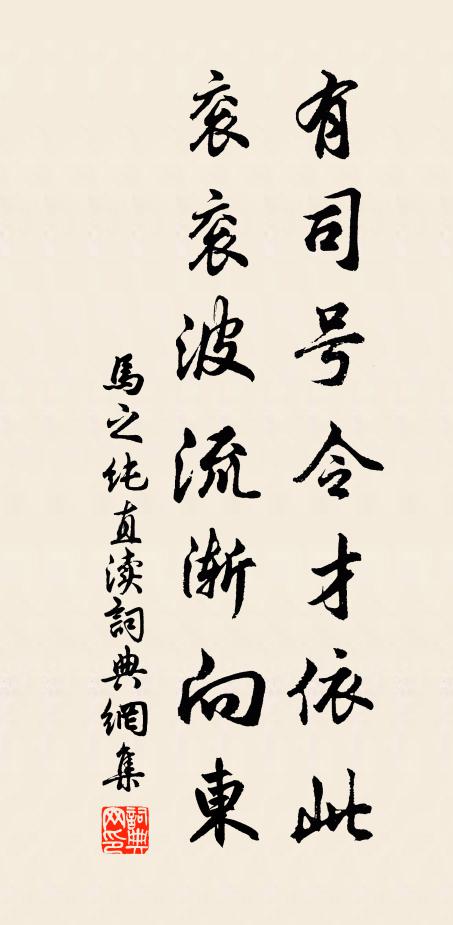 有司号令才依此
衮衮波流渐向東
馬之純直渎詞典網集
詞典网印